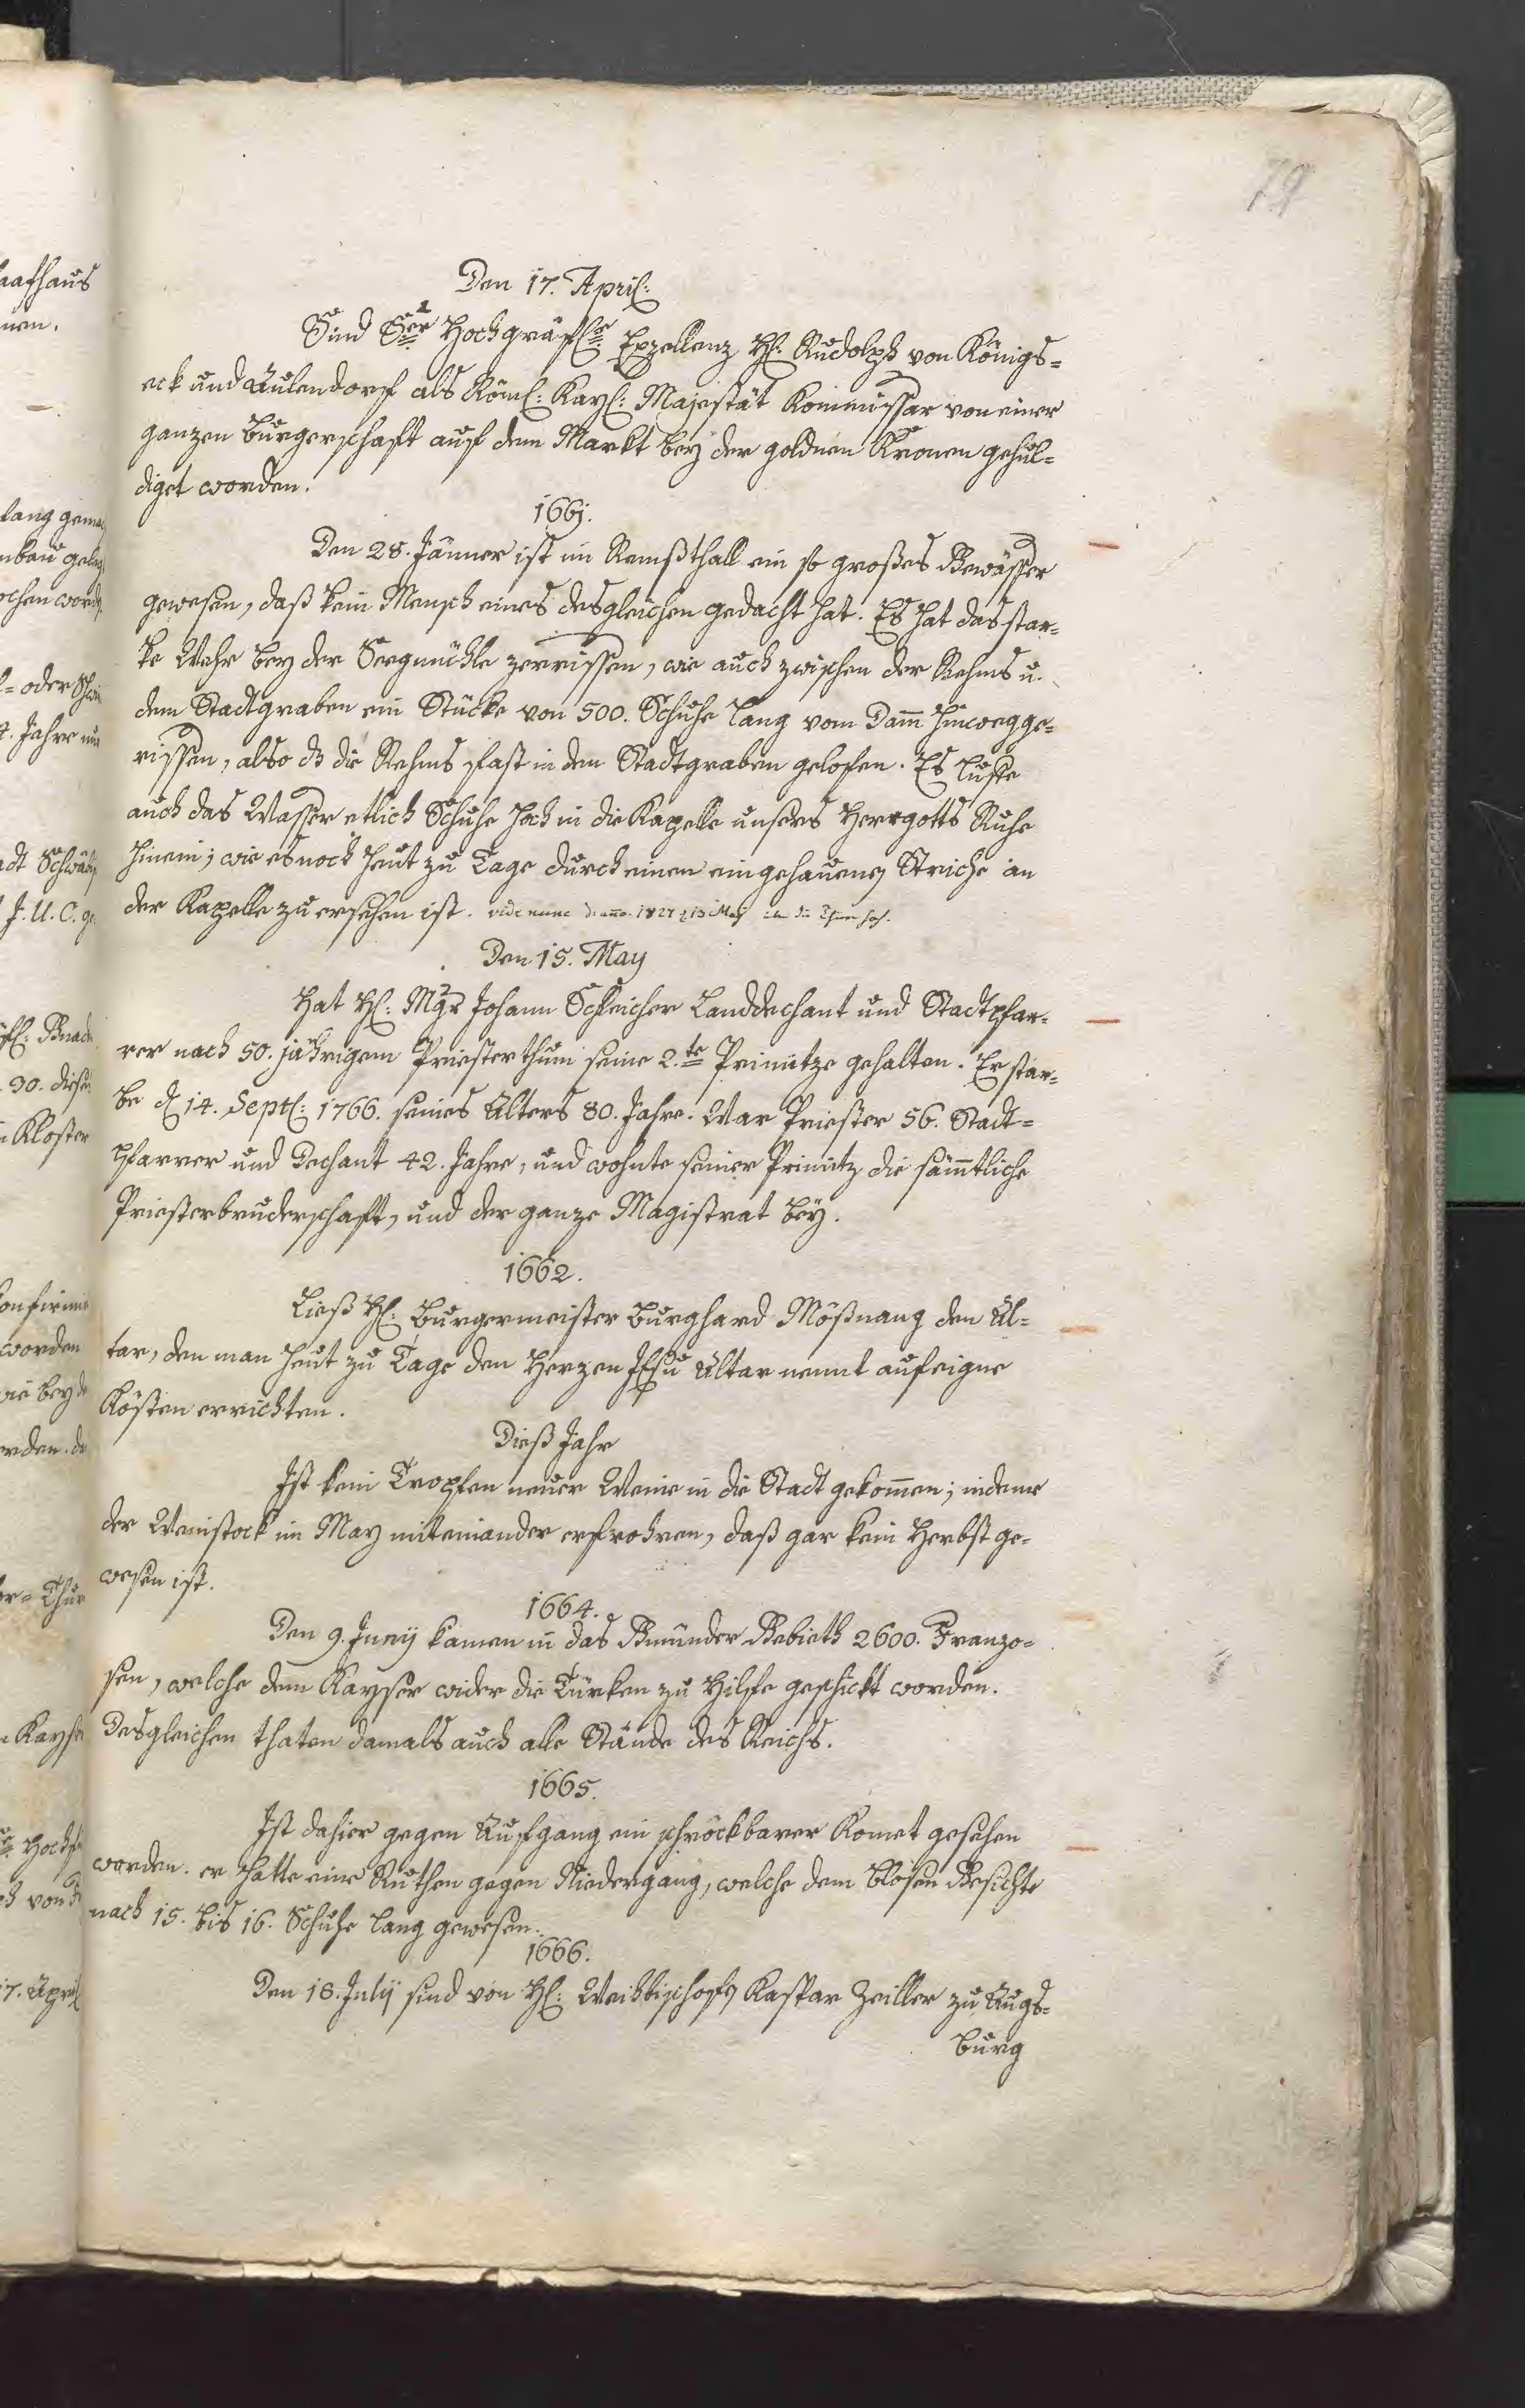 79
Den 17. April:
Sind Sr Hochgräfl: Exzellenz H: Rudolph von Königs=
eck und Aulendorf als Röml: Kayl: Majestät Kommissar von einer
ganzen Burgerschaft auf dem Markt bey der goldnen Kronen gehul=
diget worden.
1661.
Den 28. Jänner ist im Remßthall ein so großes Gewässer
gewesen, daß kein Mensch eines desgleichen gedacht hat. Es hat das star=
ke Wehr bey der Seegmühle zerrissen, wie auch zwischen der Rehms u.
dem Stadtgraben ein Stücke von 500. Schuhe lang vom Dam̄ hinwegge=
rissen, also dß die Rehms fast in den Stadtgraben geloffen. Es luffe
auch das Wasser etlich Schuhe hoch in die Kapelle unsers Herrgotts Ruhe
hinein; wie es noch heut zu Tage durch einen eingehauenen Striche an
der Kapelle zu ersehen ist. vide nunc de ano. 1827 d 13 May
Den 15. May
Hat H: Mgr Johann Schleicher Landdechant und Stadtpfar=
rer nach 50. jährigem Priesterthum seine 2.te Primitze gehalten. Er star=
be d 14. Septl: 1766. seines Alters 80. Jahre. War Priester 56. Stadt=
pfarrer und Dechant 42. Jahre, und wohnte seiner Primitz die sām̄tliche
Priesterbruderschaft, und der ganze Magistrat bey.
1662.
Ließ H: Burgermeister Burghard Mößnang den Al=
tar, den man heut zu Tage den Herzen Jesu Altar nennt auf eigne
Kösten errichten.
Dieß Jahr
Ist kein Tropfen neuer Weine in die Stadt gekom̄en; indeme
der Weinstock im May miteinander erfrohren, daß gar kein Herbst ge=
wesen ist.
1664.
Den 9. Junij kamen in das Gmünder Gebieth 2600. Franzo=
sen, welche dem Kayser wider die Türken zu Hilfe geschickt worden.
Desgleichen thaten damals auch alle Stände des Reichs.
1665.
Ist dahier gegen Aufgang ein schröckbarer Komet gesehen
worden. er hatte eine Ruthen gegen Niedergang, welche dem blosen Gesichte
nach 15. bis 16. Schuhe lang gewesen.
1666.
Den 18. Julij sind von H: Weihbischofe Kaspar Zeiller zu Augs=
burg